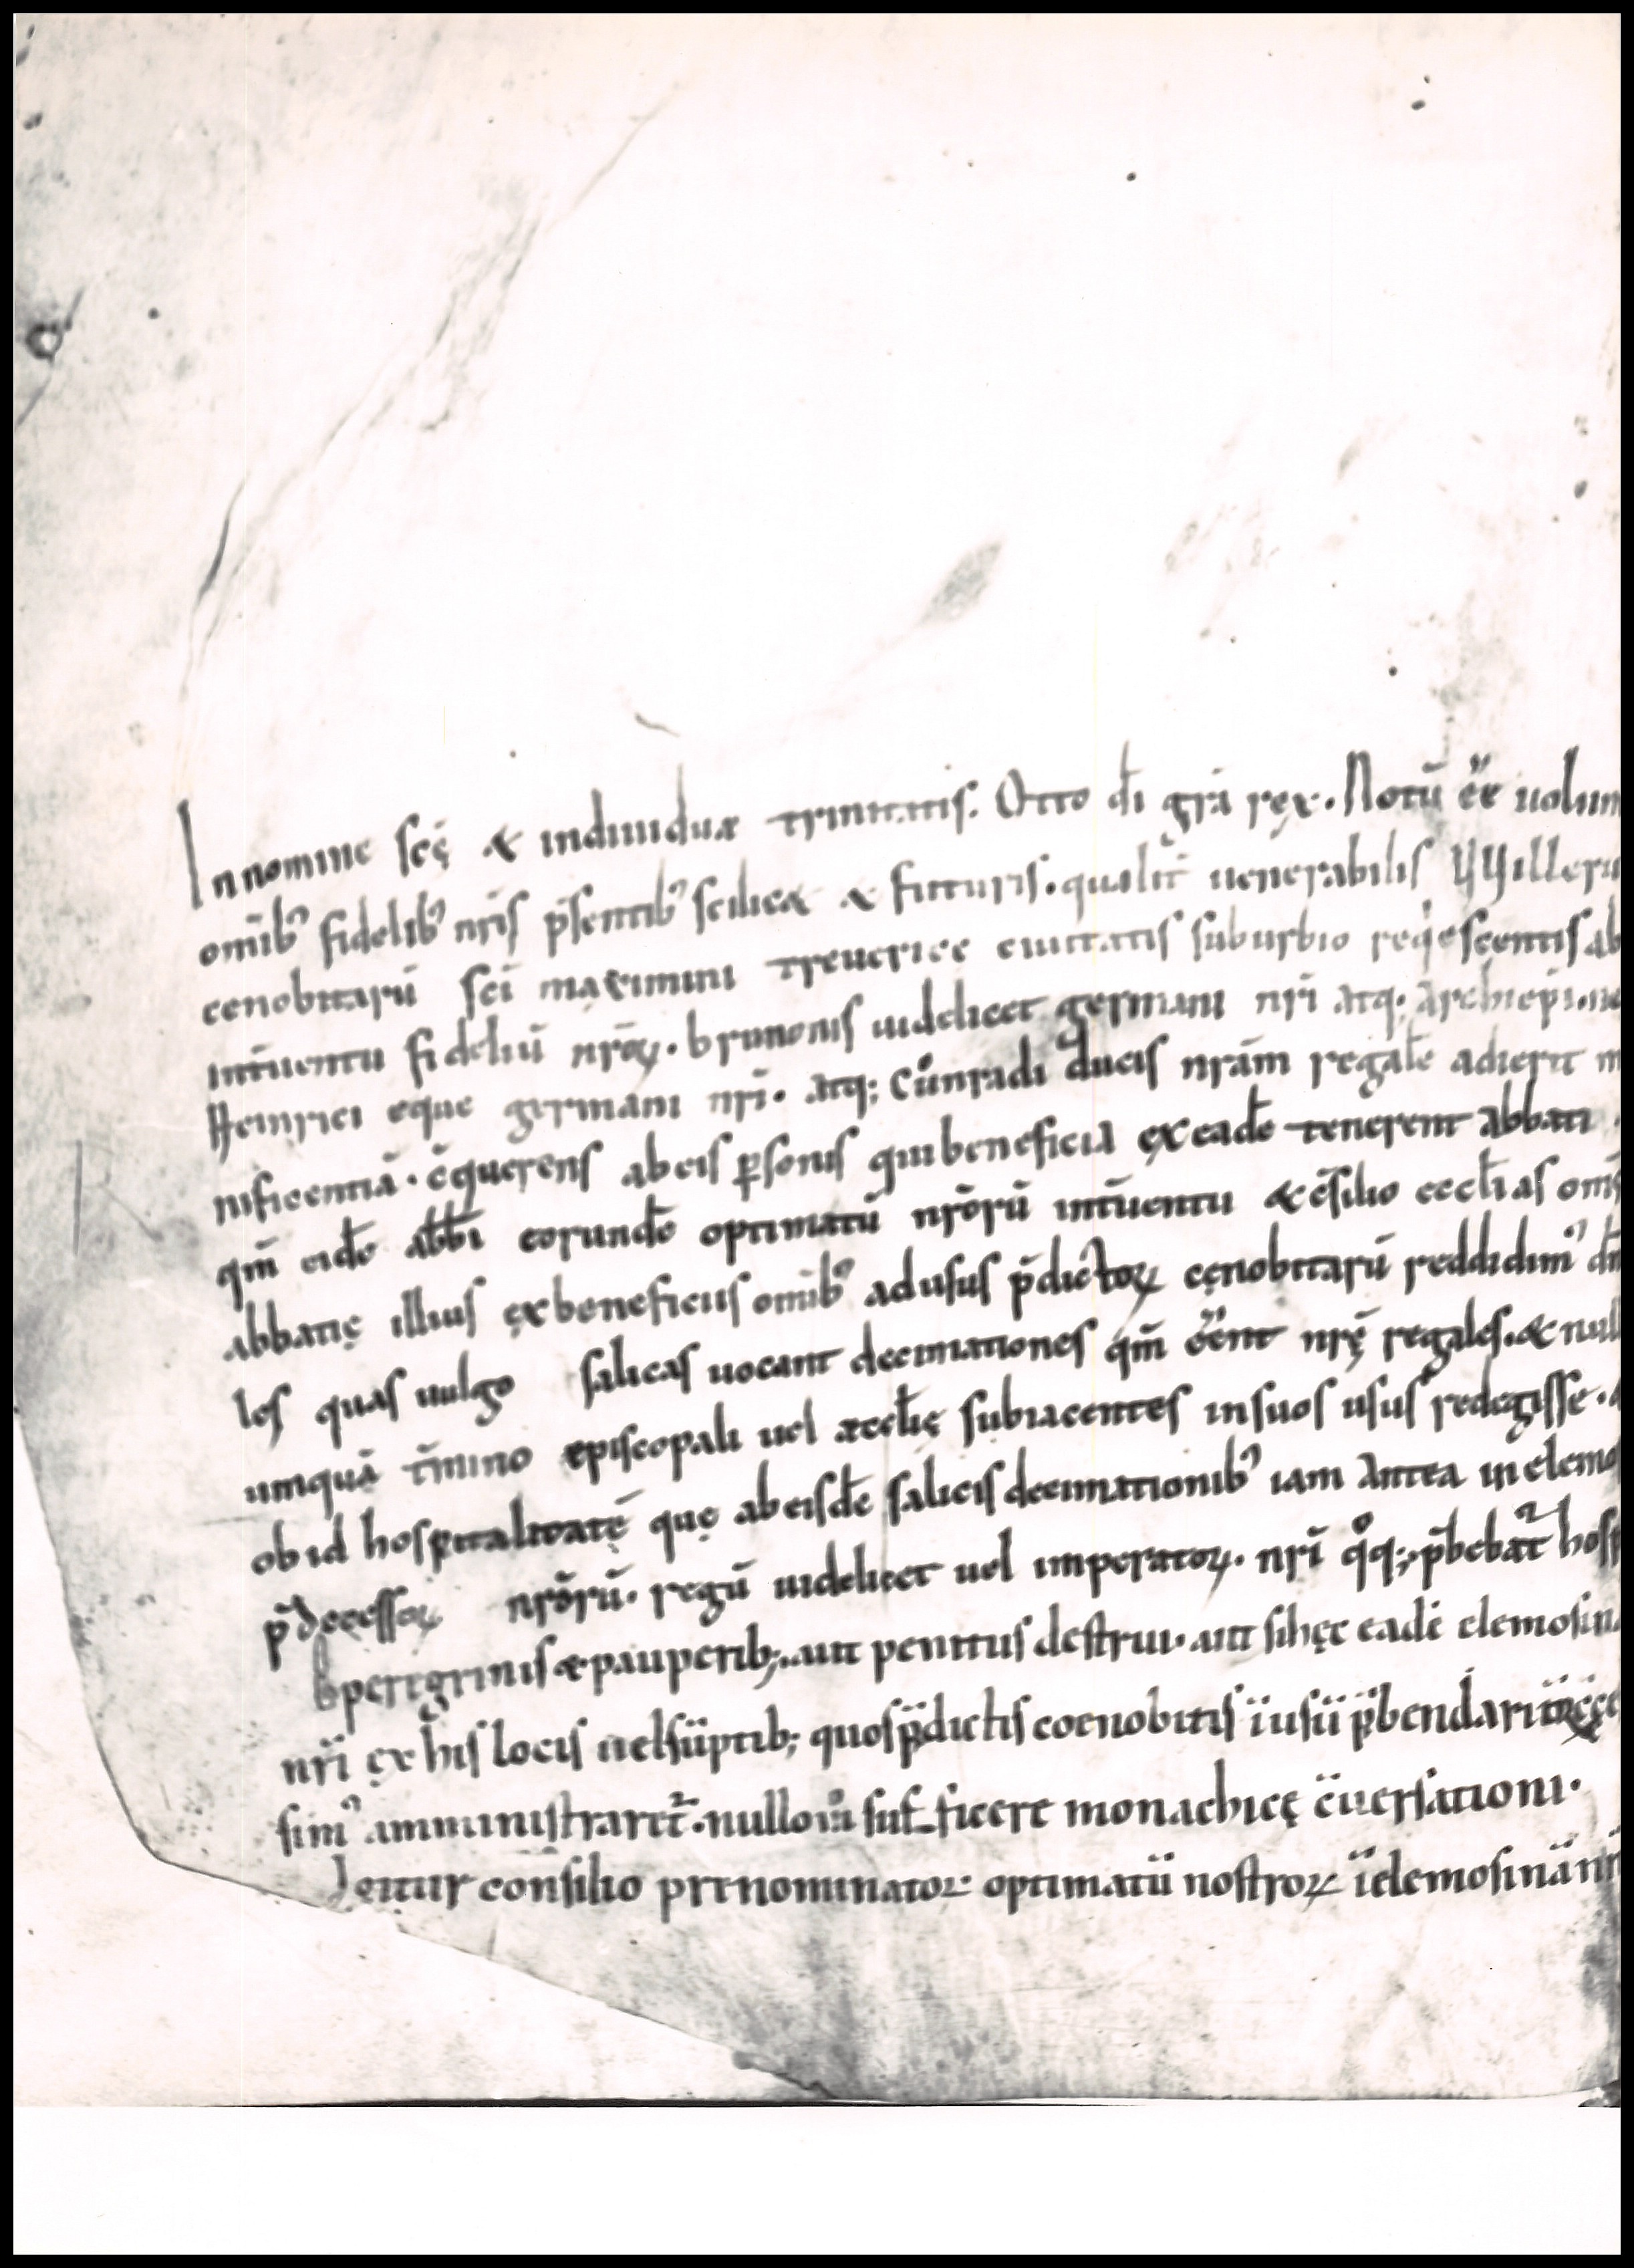 In nomine scę & indiuiduæ trinitatis. Otto dī grā rex. Notū ēē uolum
omīb' fidelib' nrīs p̄sentib' scilic& & futuris. qualit̄ uenerabilis VVilleru
cenobitarū scī maximini treuerice ciuitatis suburbio reqͥescentis ab
int̄uentu fideliū nr̄oꝝ. brunonis uidelicet germani nrī atq; archiepī. ne
Heinrici eque germani nrī. atq; Cůnradi ducis nrām regalē adierit m
nificentiā. c̄querens ab eis ꝑsonis qui beneficia ex eadē tenerent abbati
qm̄ eidē abbī eorundē optimatū nr̄orū int̄uentu & c̄silio eccłias om̄s
abbatię illius ex beneficiis omīb' ad usus p̄dictoꝝ cęnobitarū reddidim' dn̄
les quas uulgo salicas uocant decimationes qm̄ ēēnt nrę̄ regales. & nul
umquā t̄mino episcopali uel æccłię subiacentes in suos usus redegisse.
ob id hospitalitatē quę ab eisdē salicis decimationib' iam antea in elemo
p̄decessoꝝ nr̄orū. regū uidelicet uel imperatoꝝ. nrī qͦq; p̄bebat᷑ hosp
peregrinis & pauperib; aut penitus destrui. aut si hęc eadē elemosin
nrī ex his locis uel sūptib; quos p̄dictis coenobitis ī usū p̄bendariū
sim' amministraret᷑. nullo m̊ sufficere monachicę c̄uersationi.
Igitur consilio prenominatoꝝ optimatū nostroꝝ ī elemosinā nr